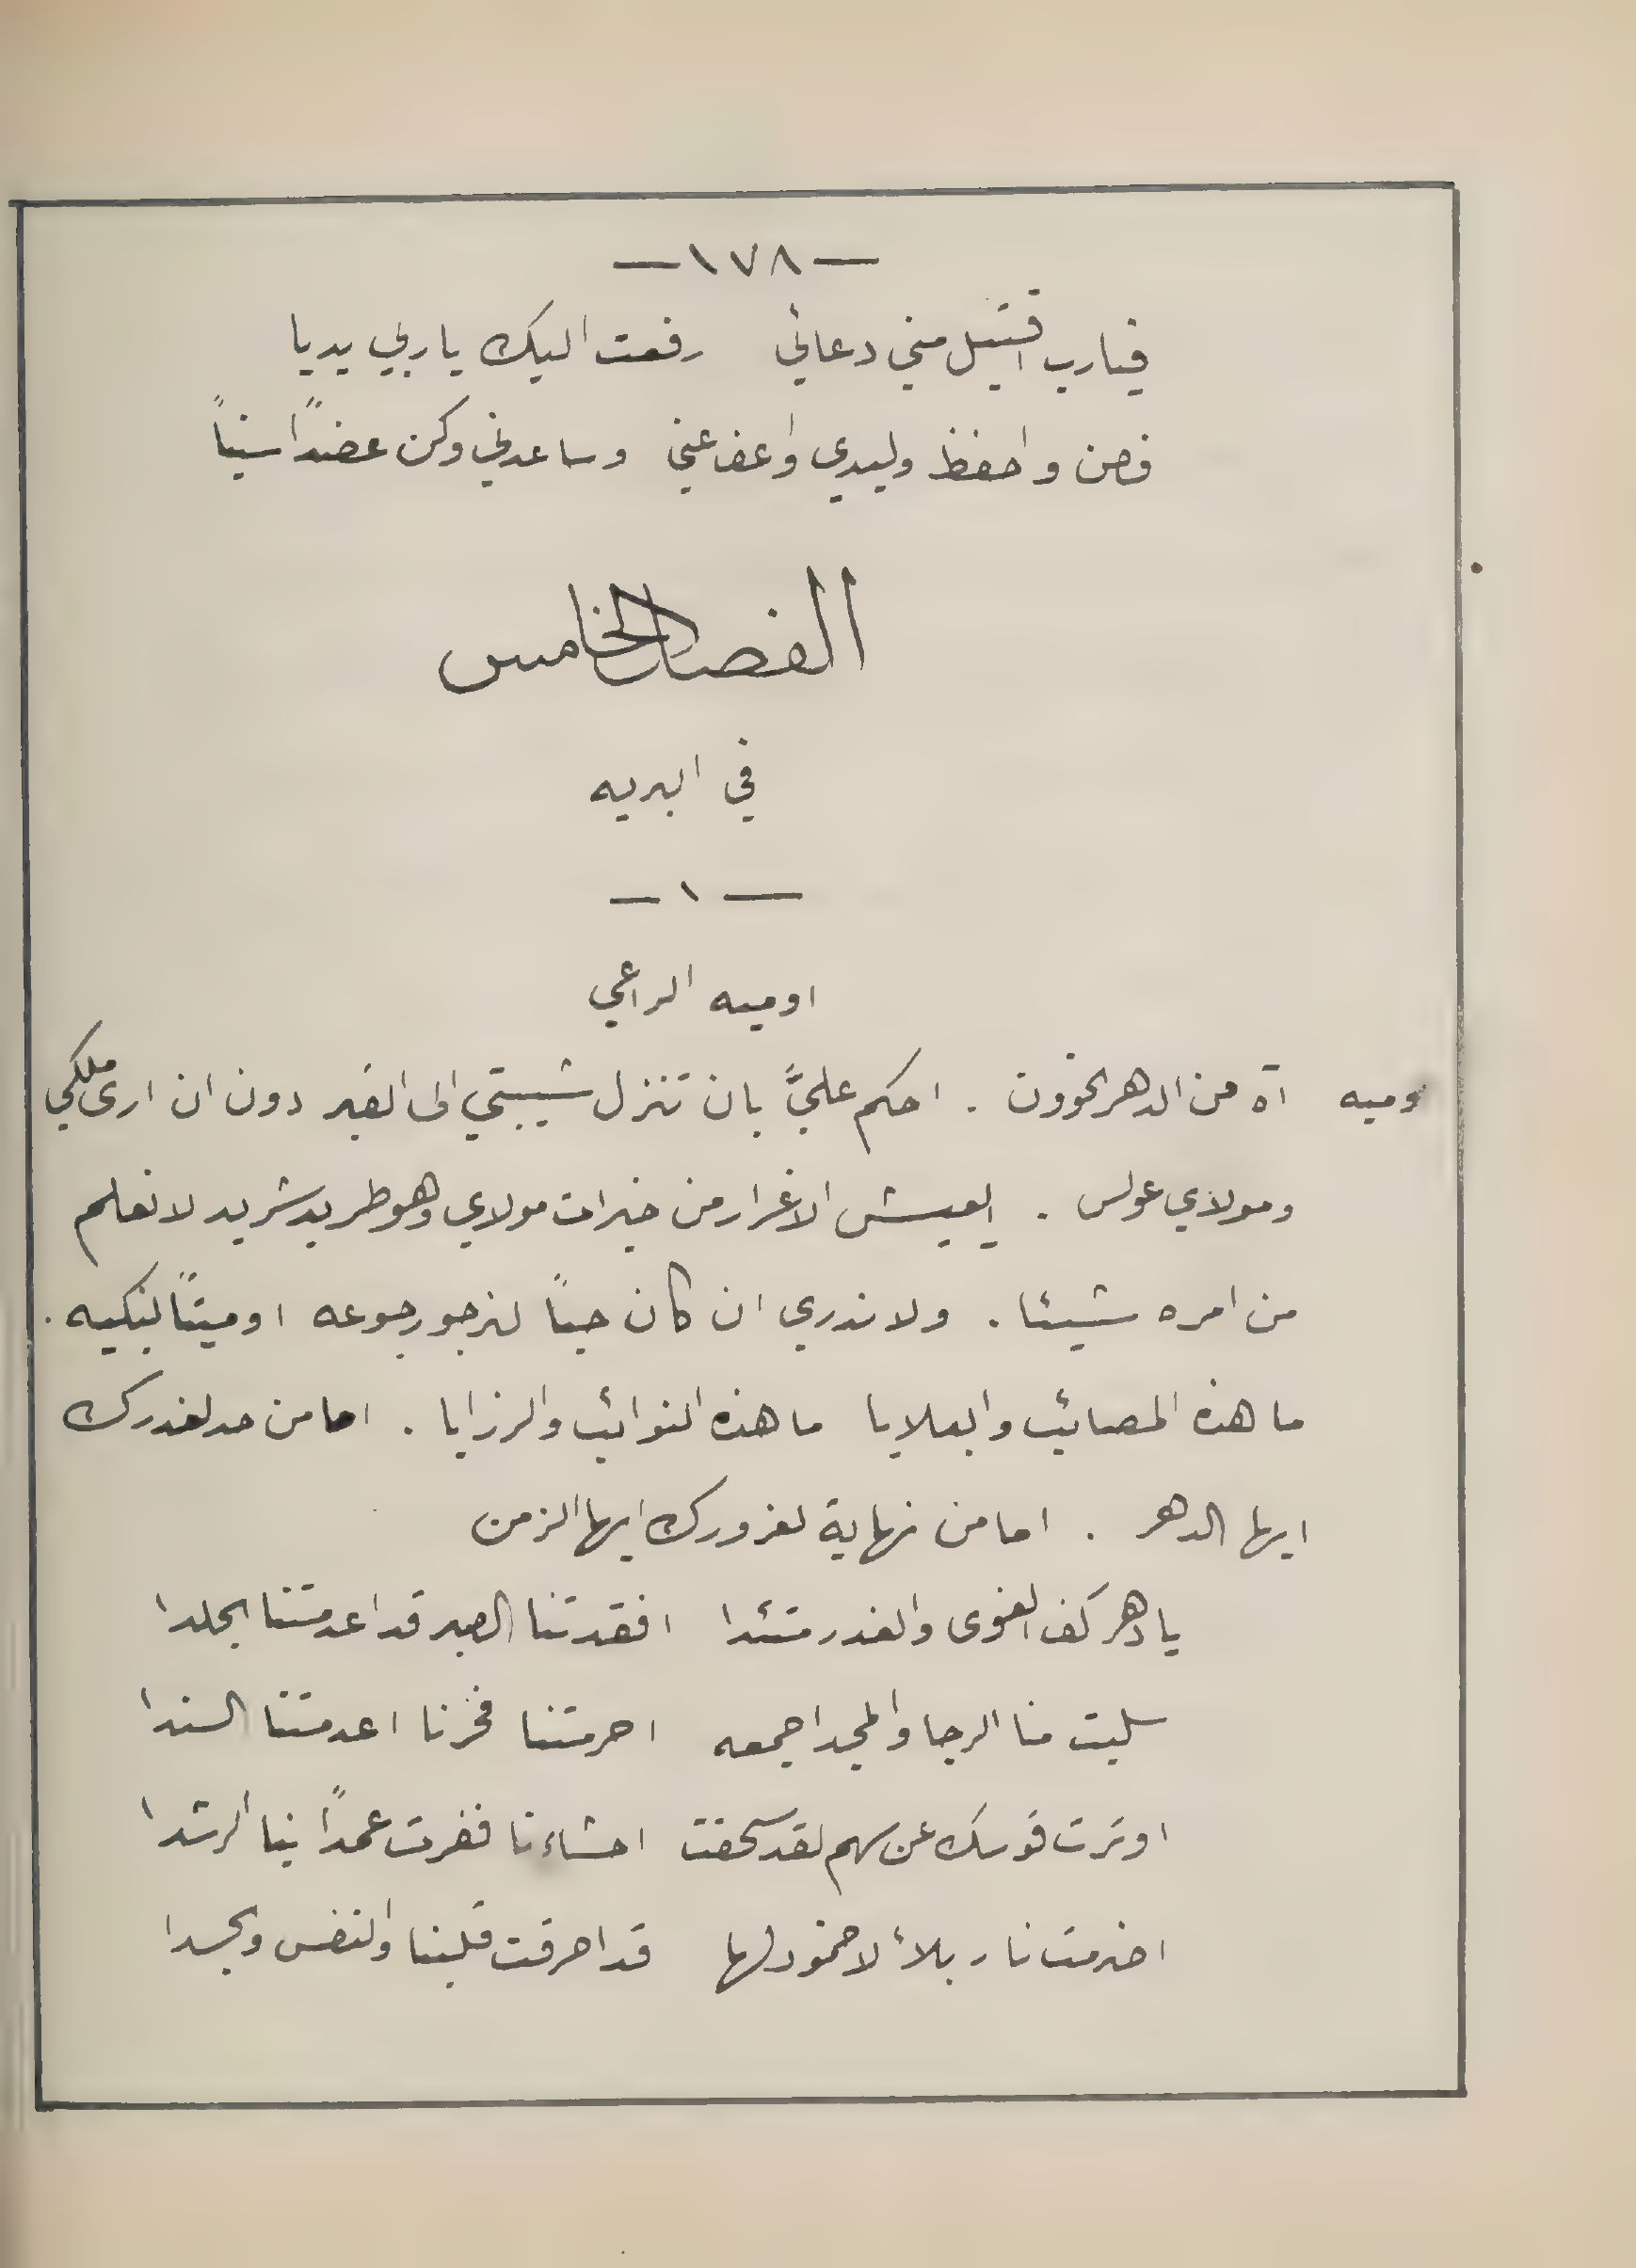 —١٧٨—
فيارب اقتبل مني دعائي رفعت اليك ياربي يديا
فصن واحفظ وليدي واعف عني وساعدني وكن عضداً سنياً
الفصل الخامس
في البريه
— ١ —
اوميه الراعي
وميه آة من الدهر الخوون . احكم عليَّ بان تنزل شيبتي الى القبر دون ان ارى ملكي
ومولاي عولس . ايعيش الاغرار من خيرات مولاي وهو طريد شريد لا نعلم
من امره شيئا . ولا ندري ان كان حياً لنرجو رجوعه او ميتاً لنبكيه .
ما هذه المصائب والبلايا ما هذه النوائب والرزايا . اما من حد لغدرك
ايها الدهر . اما من نهاية لغرورك ايها الزمن
يا دهر كف الغوى والغدر متئدا افقدتنا الصبر قد اعدمتنا الجلدا
سلبت منا الرجا والمجد اجمعه احرمتنا فخرنا اعدمتنا السندا
اوترت قوسك عن سهم لقد سحقت احشاءنا ففرت عمداً بنا الرشدا
اضرمت نار بلاء لا خمود لها قد احرقت قلبنا والنفس والجسدا